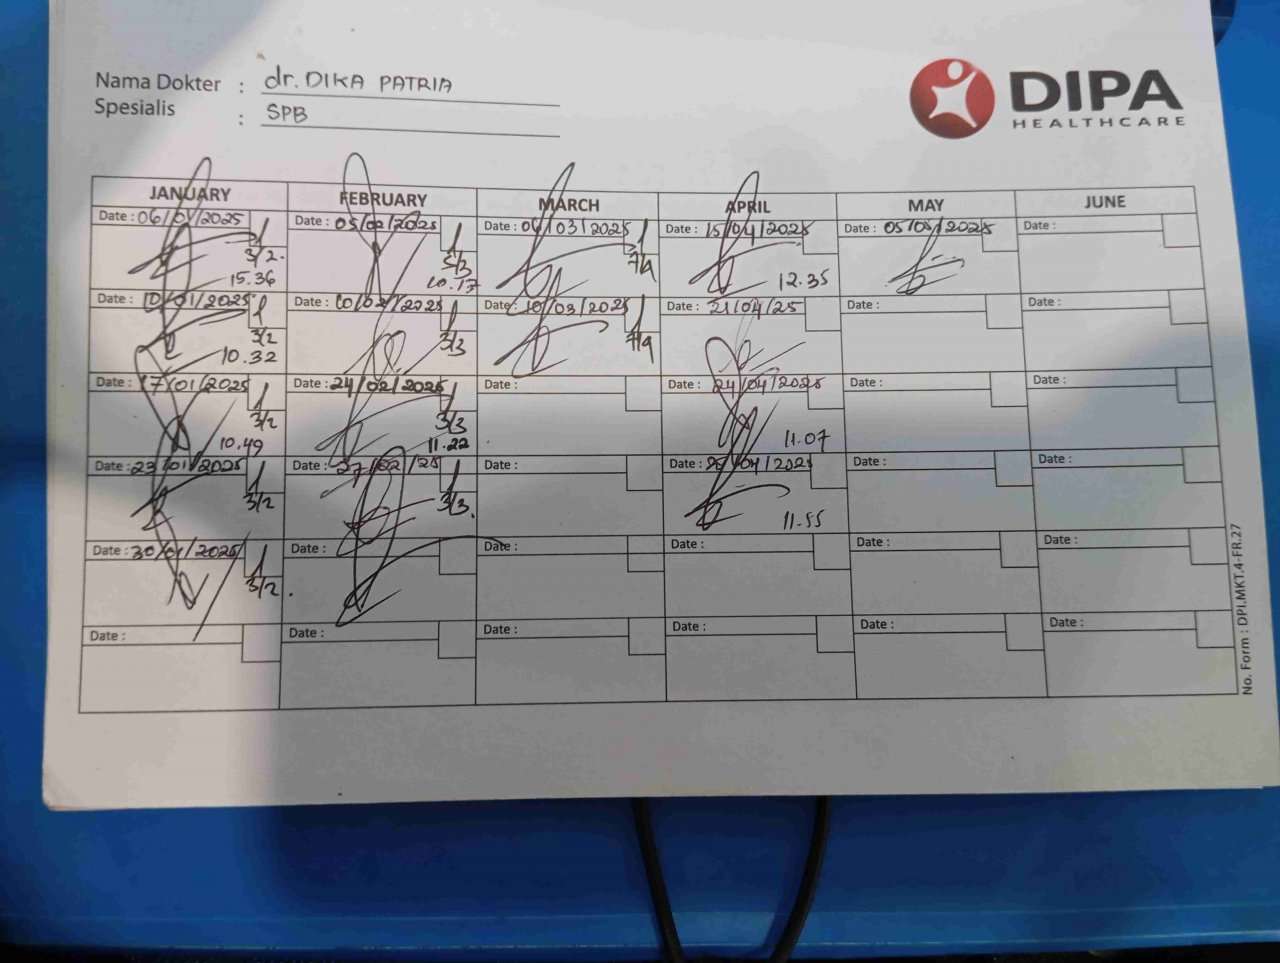 Nama Dokter : dr. DIKA PATRIA
Spesialis : SPB
DIPA
HEALTHCARE
JANUARY FEBRUARY MARCH APRIL MAY JUNE
Date : 06/01/2025 Date : 05/02/2025 Date : 06/03/2025 Date : 15/04/2025 Date : 05/05/2025 Date :
3/2. 5/3 7/4
15.36 10.17 12.35
Date : 10/01/2025 Date : 10/02/2025 Date : 10/03/2025 Date : 21/04/25 Date : Date :
3/2 3/3 7/4
10.32
Date : 17/01/2025 Date : 24/02/2025 Date : Date : 24/04/2025 Date : Date :
3/2 3/3
10.49 11.22 11.07
Date : 23/01/2025 Date : 27/02/25 Date : Date : /04/2025 Date : Date :
3/2 3/3.
11.55
Date : 30/01/2025 Date : Date : Date : Date : Date :
3/2.
Date : Date : Date : Date : Date : Date :
No. Form : DPI.MKT.4-FR.27